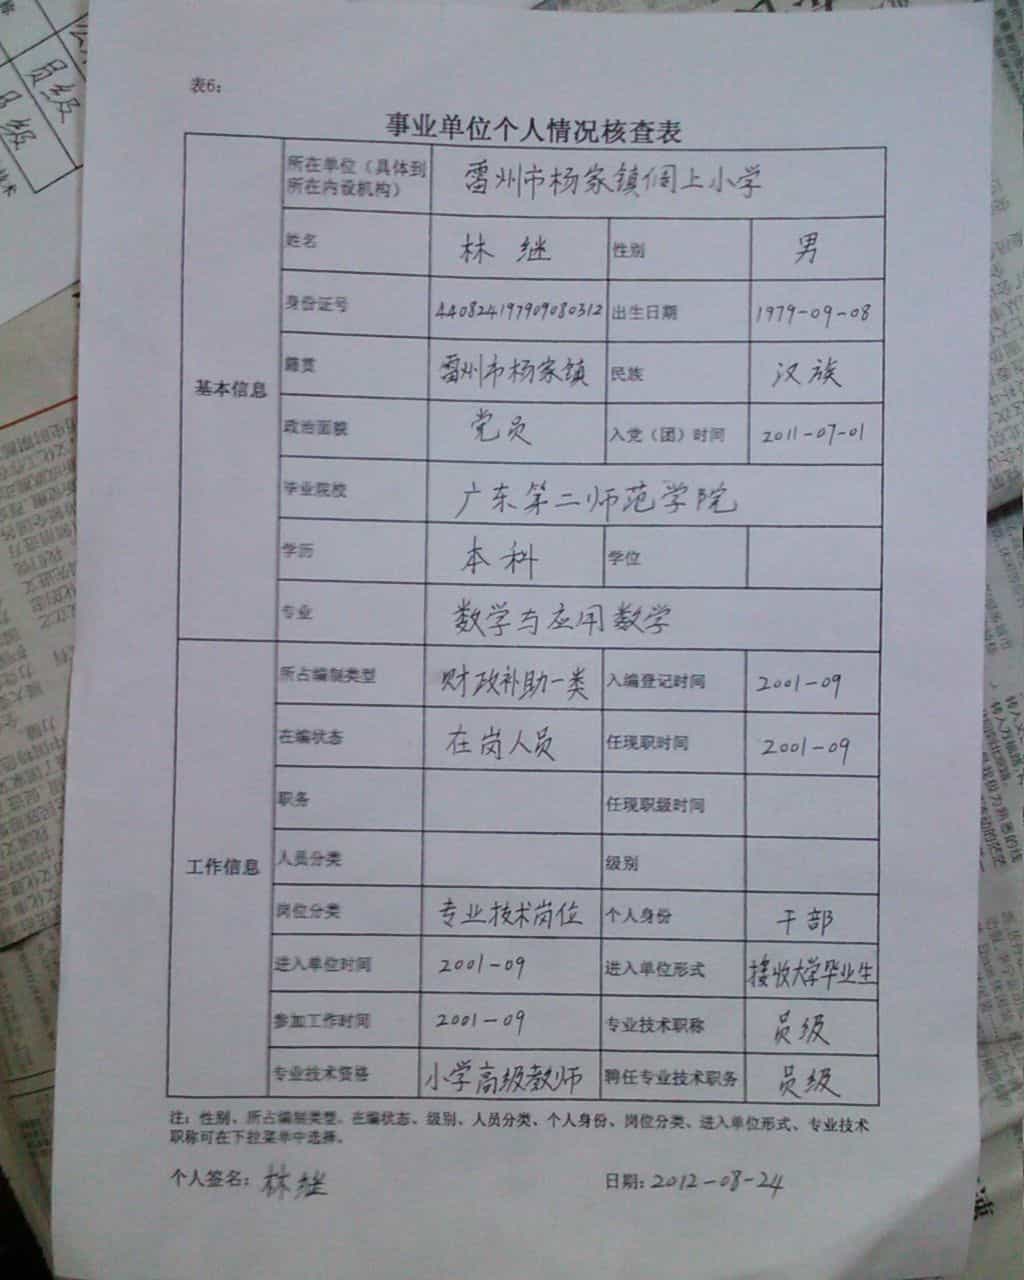 表6：
事业单位个人情况核查表
基本信息
所在单位（具体到所在内设机构） 雷州市杨家镇倜上小学
姓名 林继 性别 男
身份证号 440824197909080312 出生日期 1979-09-08
籍贯 雷州市杨家镇 民族 汉族
政治面貌 党员 入党（团）时间 2011-07-01
毕业院校 广东第二师范学院
学历 本科 学位
专业 数学与应用数学
工作信息
所占编制类型 财政补助一类 入编登记时间 2001-09
在编状态 在岗人员 任现职时间 2001-09
职务 任现职级时间
人员分类 级别
岗位分类 专业技术岗位 个人身份 干部
进入单位时间 2001-09 进入单位形式 接收大学毕业生
参加工作时间 2001-09 专业技术职称 员级
专业技术资格 小学高级教师 聘任专业技术职务 员级
注：性别、所占编制类型、在编状态、级别、人员分类、个人身份、岗位分类、进入单位形式、专业技术
职称可在下拉菜单中选择。
个人签名：林继 日期：2012-08-24
员级
员级